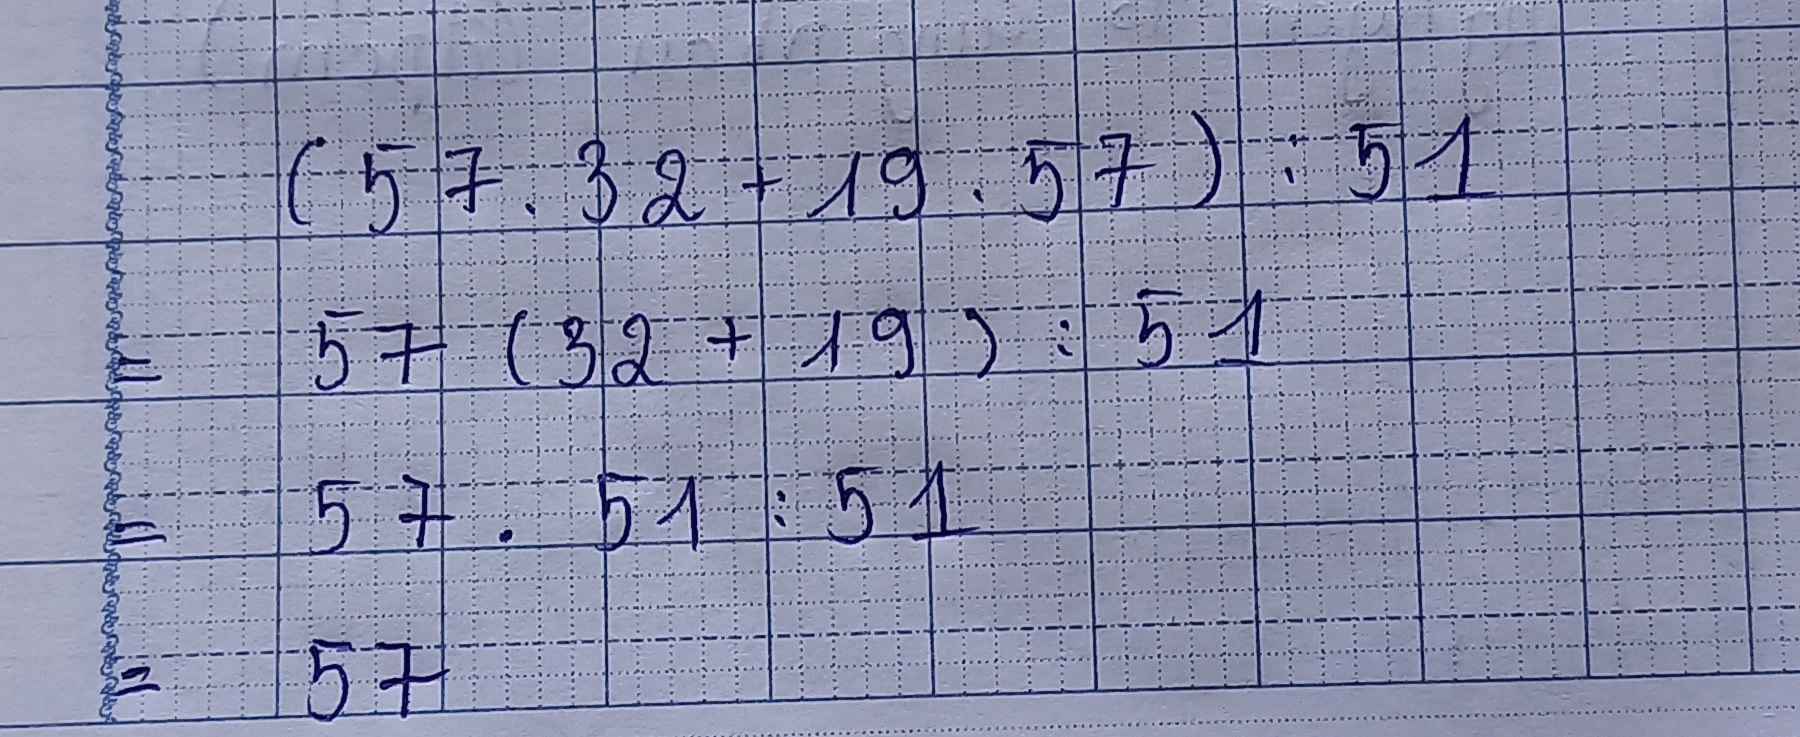 (57.32+19.57):51
= 57(32+19):51
= 57.51:51
= 57